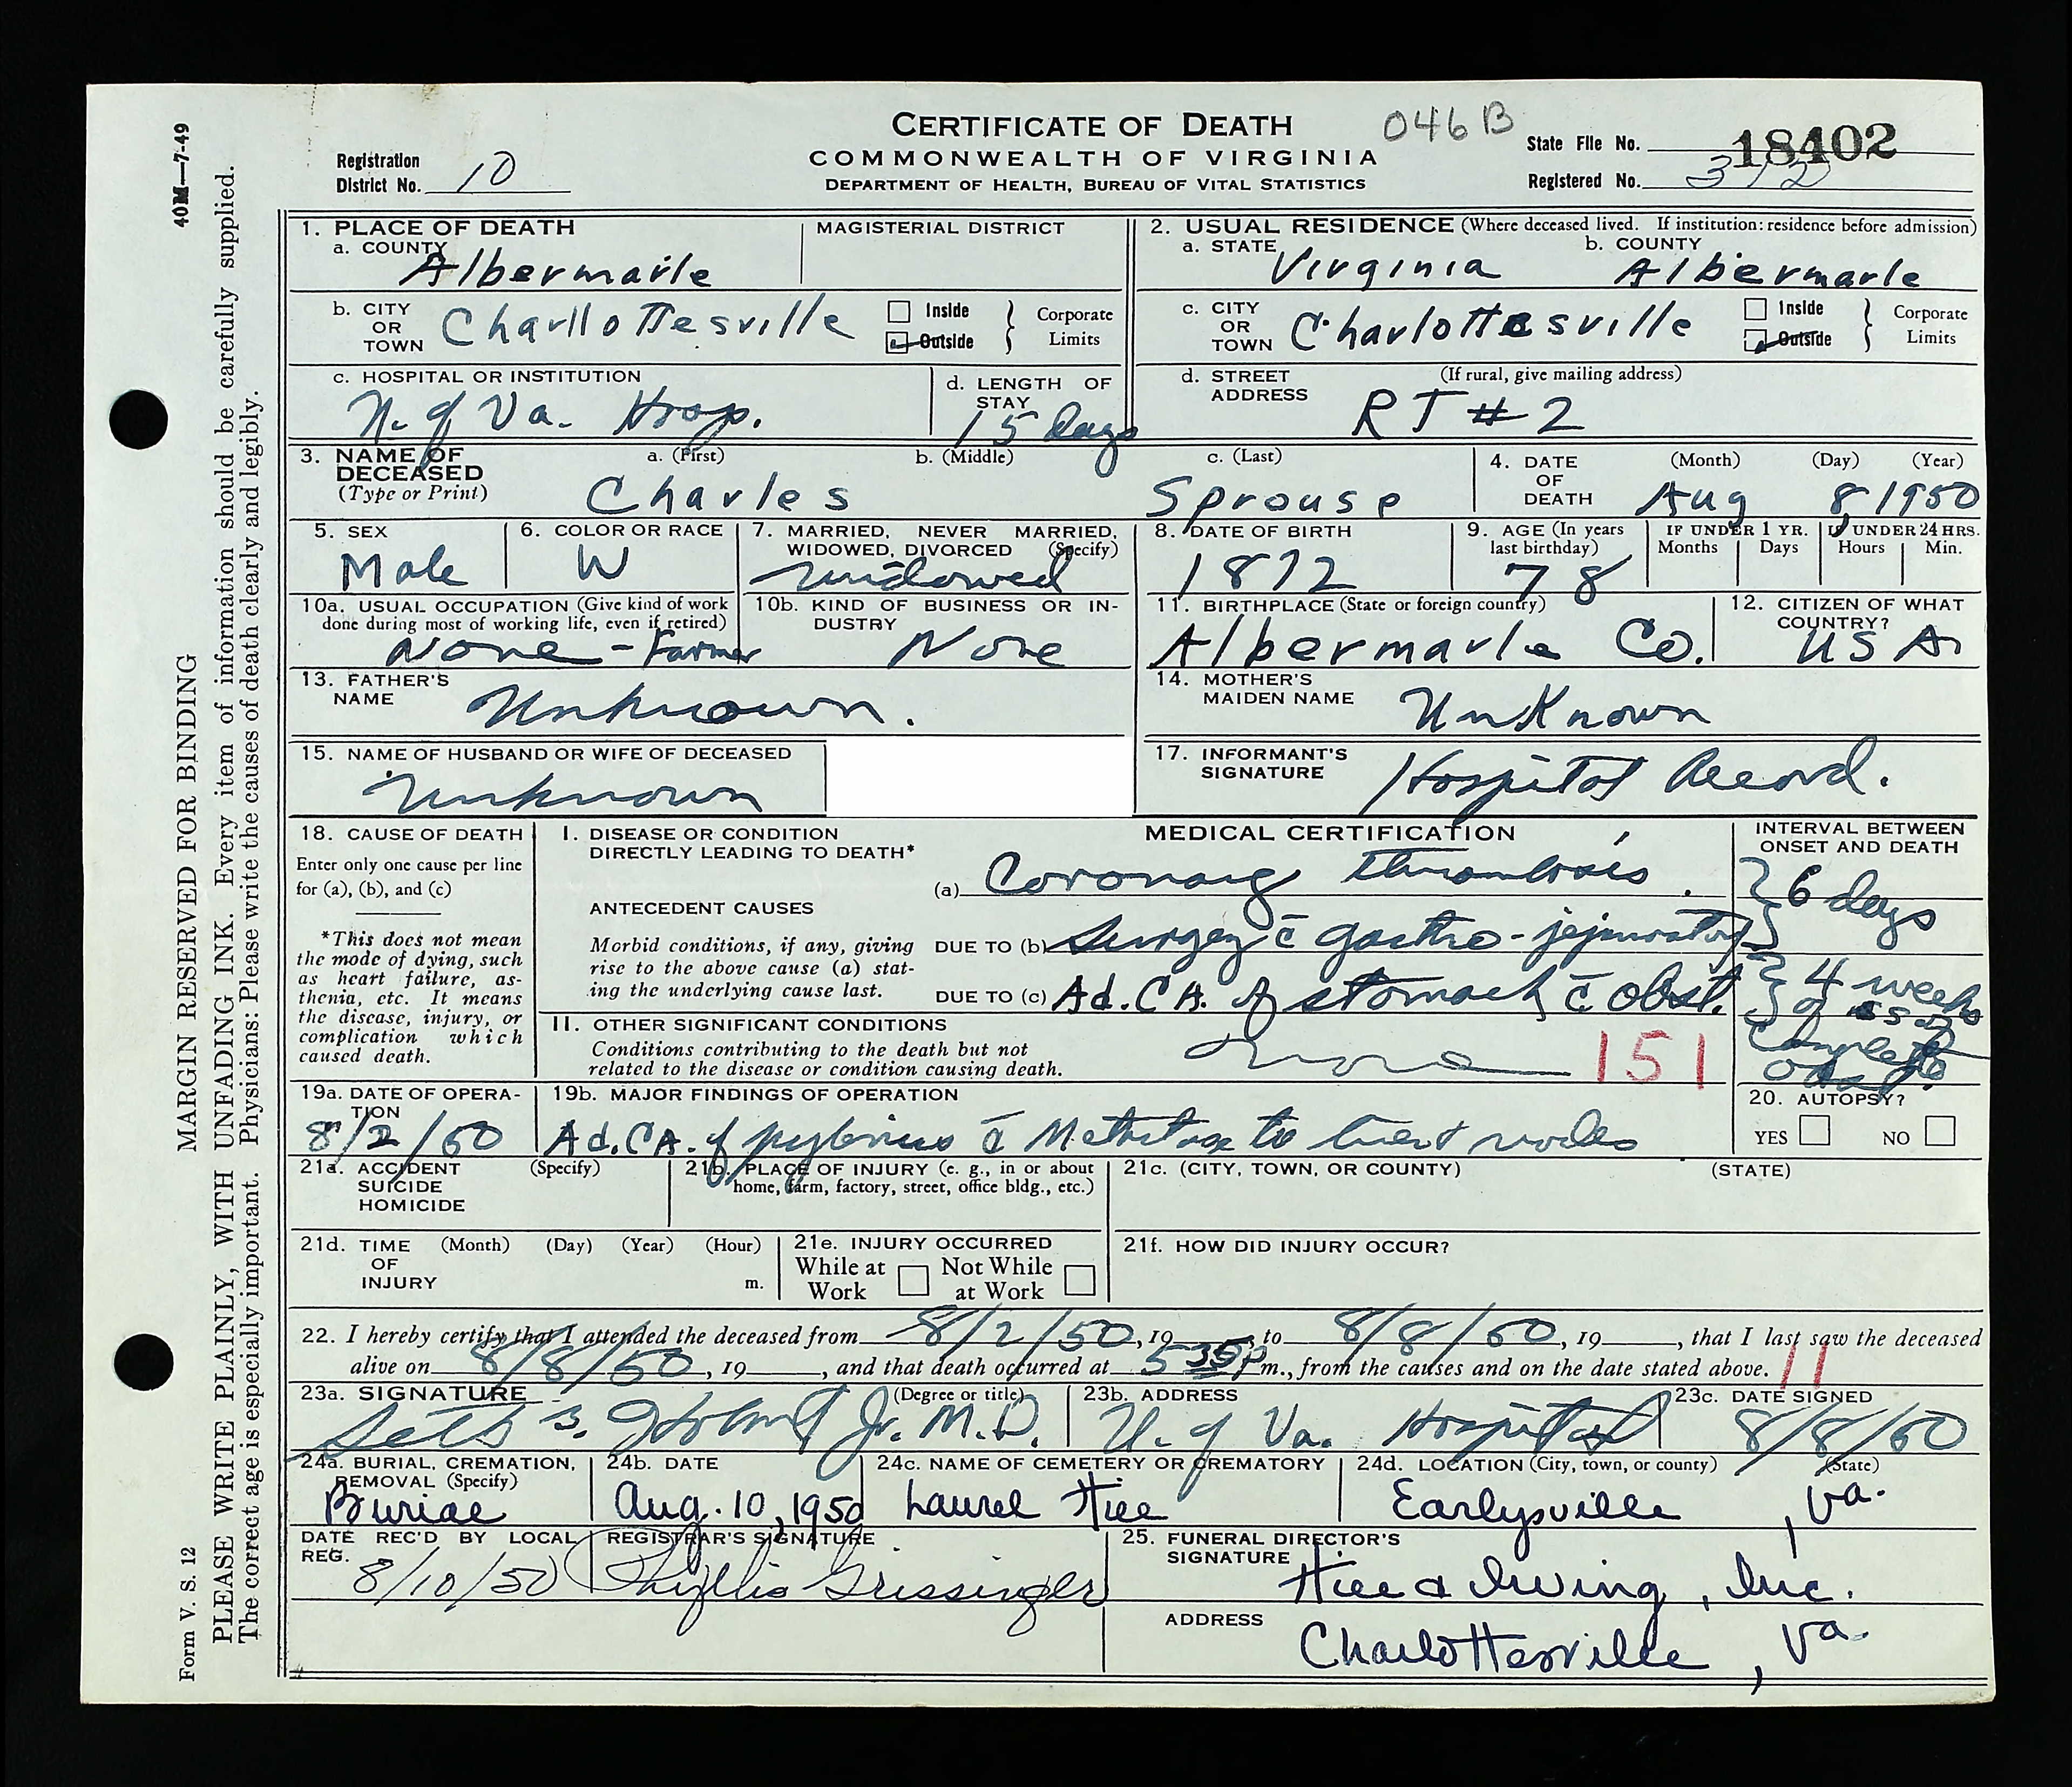 40M—7-49
CERTIFICATE OF DEATH
046B
COMMONWEALTH OF VIRGINIA
DEPARTMENT OF HEALTH, BUREAU OF VITAL STATISTICS
Registration
District No. 10
State File No. 18402
Registered No. 312
1. PLACE OF DEATH
a. COUNTY
Albermarle
MAGISTERIAL DISTRICT
2. USUAL RESIDENCE (Where deceased lived. If institution: residence before admission)
a. STATE
Virginia
b. COUNTY
Albermarle
b. CITY OR TOWN Charllottesville
Inside
Outside
Corporate Limits
c. CITY OR TOWN Charlottesville
Inside
Outside
Corporate Limits
c. HOSPITAL OR INSTITUTION
U. of Va. Hosp.
d. LENGTH OF STAY
15 days
d. STREET ADDRESS
(If rural, give mailing address)
RT # 2
3. NAME OF DECEASED
(Type or Print)
a. (First)
Charles
b. (Middle)
c. (Last)
Sprouse
4. DATE OF DEATH
(Month) (Day) (Year)
Aug 8, 1950
5. SEX
Male
6. COLOR OR RACE
W
7. MARRIED, NEVER MARRIED,
WIDOWED, DIVORCED (Specify)
Widowed
8. DATE OF BIRTH
1872
9. AGE (In years
last birthday)
78
IF UNDER 1 YR.
Months Days
IF UNDER 24 HRS.
Hours Min.
10a. USUAL OCCUPATION (Give kind of work
done during most of working life, even if retired)
None - Farmer
10b. KIND OF BUSINESS OR IN-
DUSTRY
None
11. BIRTHPLACE (State or foreign country)
Albermarle Co.
12. CITIZEN OF WHAT
COUNTRY?
USA
13. FATHER'S
NAME
Unknown.
14. MOTHER'S
MAIDEN NAME
UnKnown
15. NAME OF HUSBAND OR WIFE OF DECEASED
Unknown
17. INFORMANT'S
SIGNATURE
Hospital Record.
18. CAUSE OF DEATH
Enter only one cause per line
for (a), (b), and (c)
*This does not mean
the mode of dying, such
as heart failure, as-
thenia, etc. It means
the disease, injury, or
complication which
caused death.
MEDICAL CERTIFICATION
I. DISEASE OR CONDITION
DIRECTLY LEADING TO DEATH*
(a) Coronary thrombosis.
ANTECEDENT CAUSES
Morbid conditions, if any, giving
rise to the above cause (a) stat-
ing the underlying cause last.
DUE TO (b) Surgery c̄ gastro-jejunostomy
DUE TO (c) Ad. CA. of stomach c̄ obst.
INTERVAL BETWEEN
ONSET AND DEATH
6 days
4 weeks
Complete
II. OTHER SIGNIFICANT CONDITIONS
Conditions contributing to the death but not
related to the disease or condition causing death.
none
151
19a. DATE OF OPERA-
TION
8/2/50
19b. MAJOR FINDINGS OF OPERATION
Ad. CA. of c̄ to nodes
20. AUTOPSY?
YES NO
21a. ACCIDENT
SUICIDE
HOMICIDE
(Specify)
21b. PLACE OF INJURY (e. g., in or about
home, farm, factory, street, office bldg., etc.)
21c. (CITY, TOWN, OR COUNTY) (STATE)
21d. TIME OF INJURY
(Month) (Day) (Year) (Hour)
m.
21e. INJURY OCCURRED
While at Work
Not While at Work
21f. HOW DID INJURY OCCUR?
22. I hereby certify that I attended the deceased from 8/2/50, 19 to 8/8/50, 19, that I last saw the deceased
alive on 8/8/50, 19, and that death occurred at 5 35 P m., from the causes and on the date stated above.
11
23a. SIGNATURE (Degree or title)
Seth Jr. M.D.
23b. ADDRESS
U. of Va. Hospital
23c. DATE SIGNED
8/8/50
24a. BURIAL, CREMATION,
REMOVAL (Specify)
Burial
24b. DATE
Aug. 10, 1950
24c. NAME OF CEMETERY OR CREMATORY
Laurel Hill
24d. LOCATION (City, town, or county) (State)
Earlysville, Va.
DATE REC'D BY LOCAL
REG.
8/10/50
REGISTRAR'S SIGNATURE
Phyllis Grissinger
25. FUNERAL DIRECTOR'S
SIGNATURE
Hill & Irving, Inc.
ADDRESS
Charlottesville, Va.
MARGIN RESERVED FOR BINDING
PLEASE WRITE PLAINLY, WITH UNFADING INK. Every item of information should be carefully supplied.
The correct age is especially important. Physicians: Please write the causes of death clearly and legibly.
Form V. S. 12